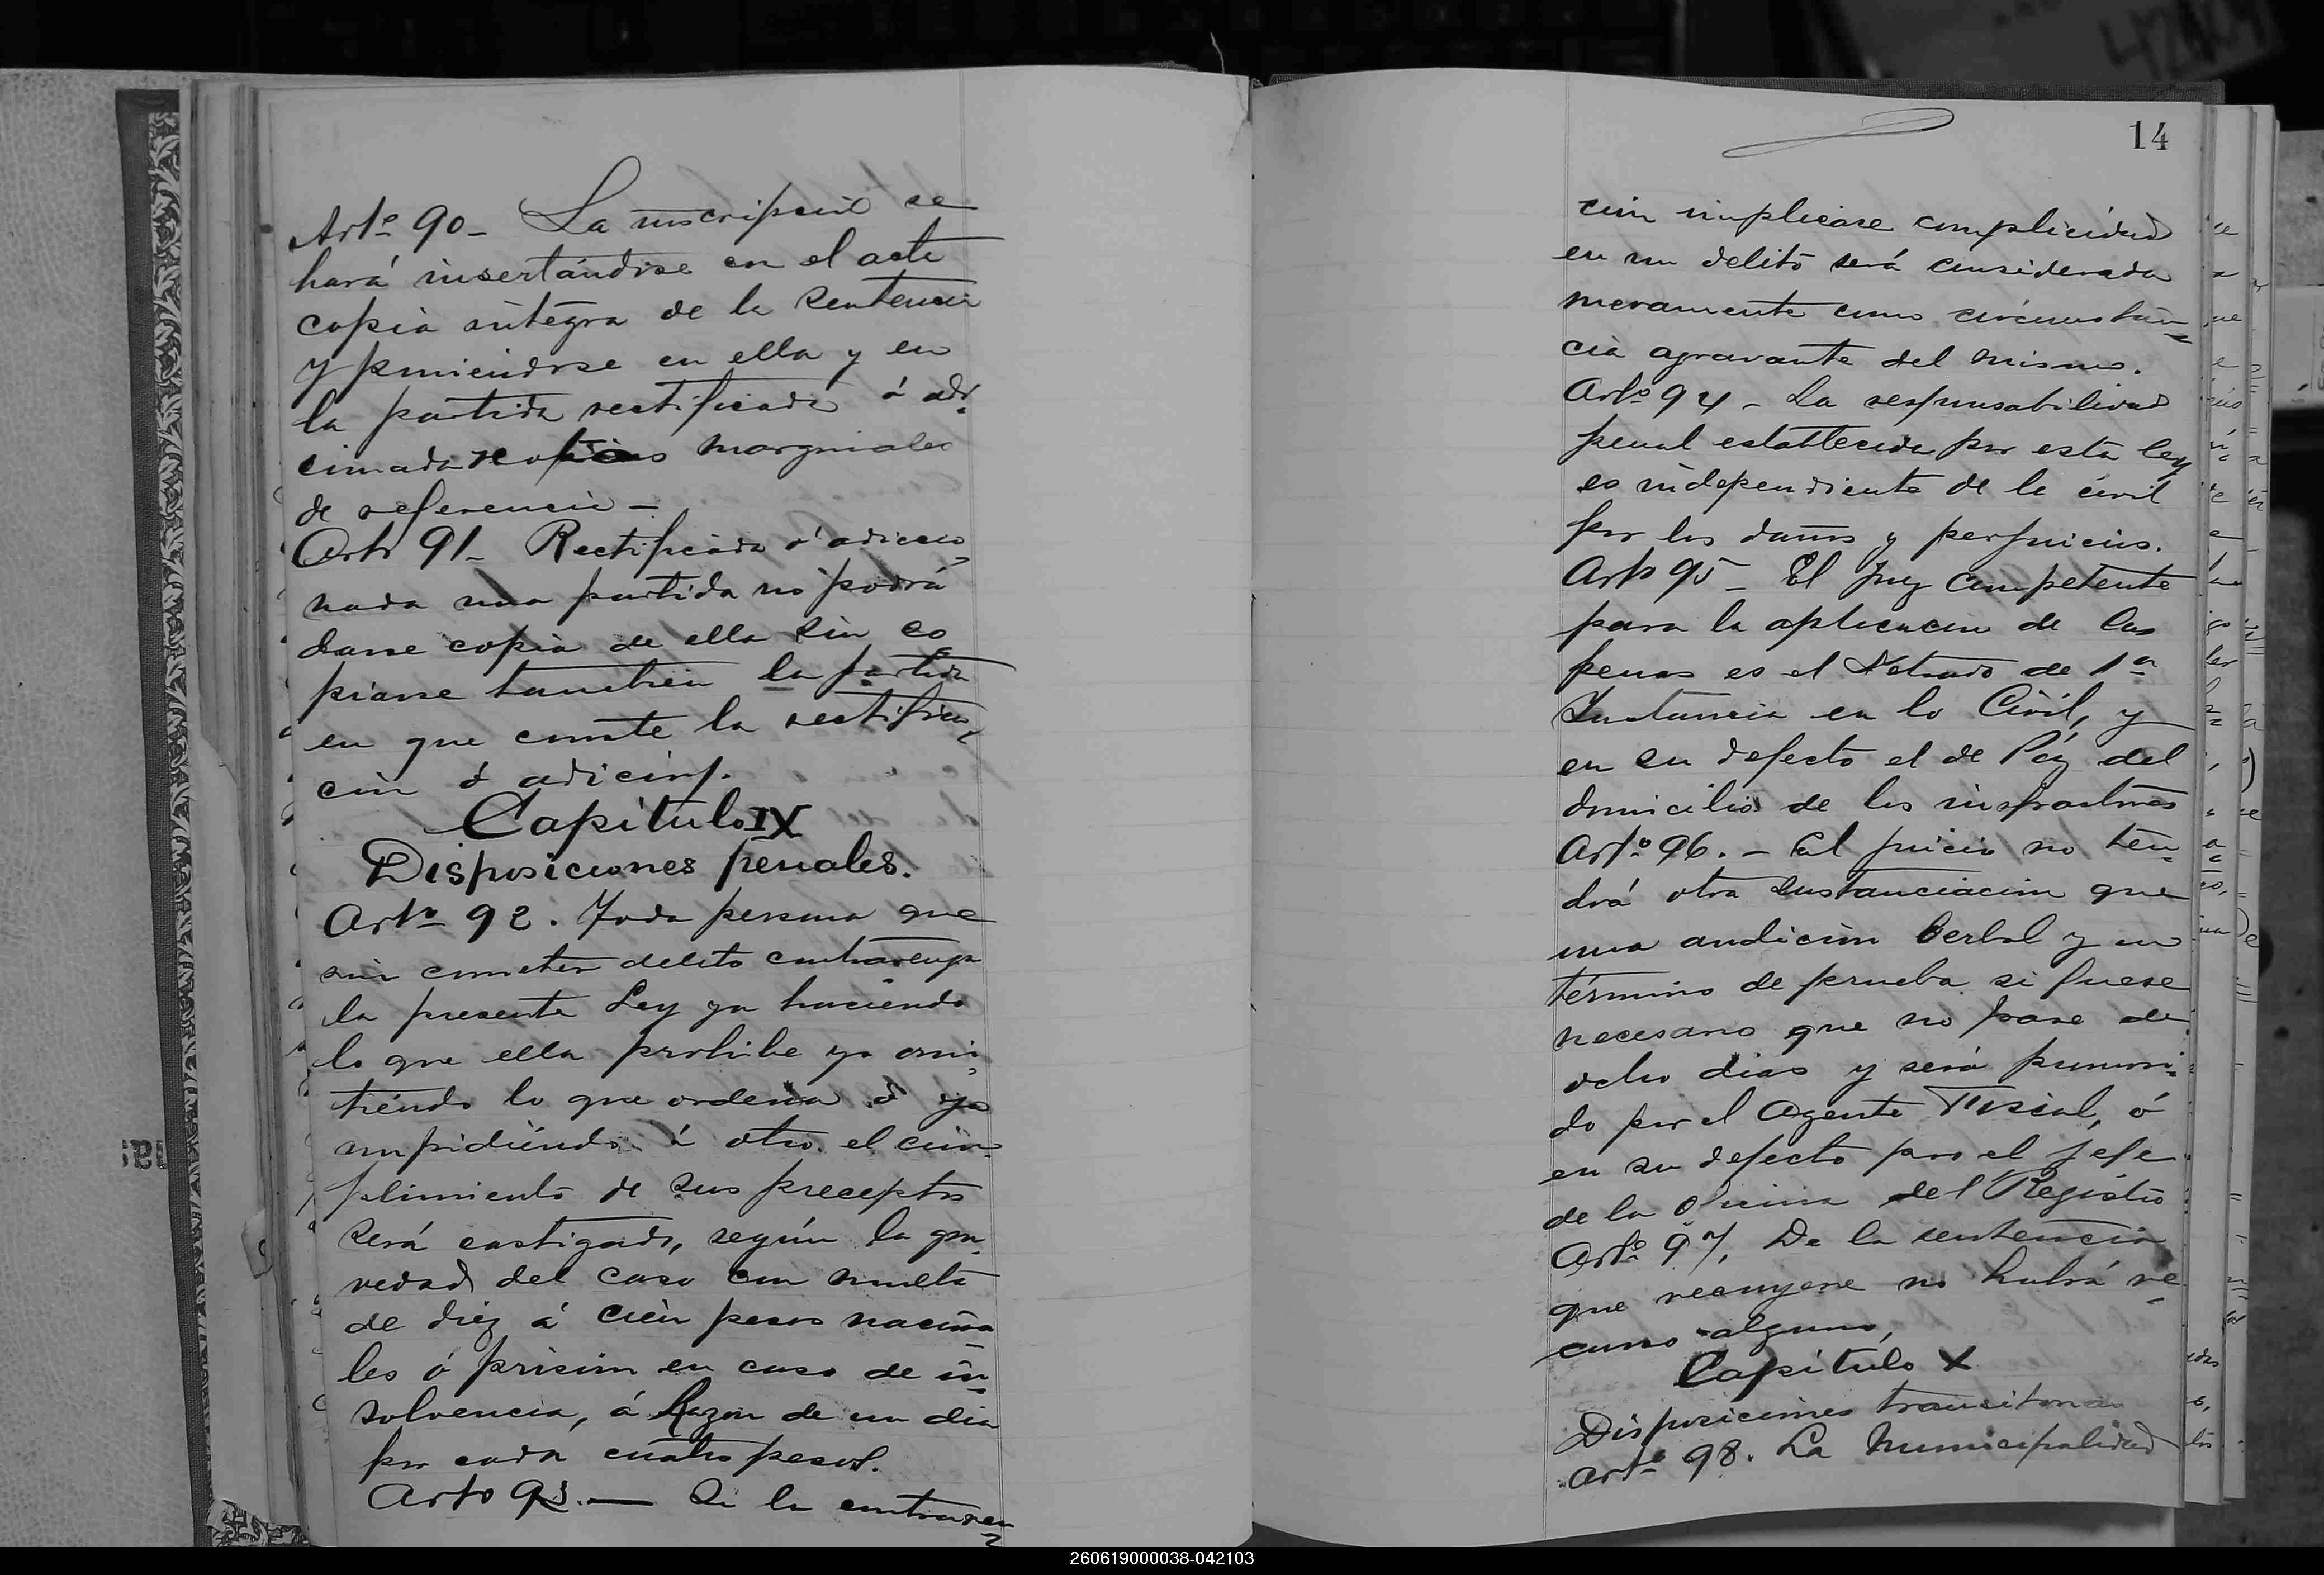 Artº 90 - La inscripción se
hará insertándose en el acta
copia íntegra de la sentencia
y poniendose en ella y en
la partida rectificada ó adi-
cionada notas marginales
de referencia -
Arto 91 - Rectificada ó adicio-
nada una partida no podrá
darse copia de ella sin co
piarse tambien la partida
en que conste la rectifica-
ción ó adición.
Capítulo IX
Disposiciones penales.
Arto 92. Toda persona que
sin cometer delito contravenga
la presente Ley ya haciendo
lo que ella prohibe ya omi-
tiendo lo que ordena ó ya
impidiéndo á otro el cum-
plimiento de sus preceptos
será castigado, según la gra-
vedad del caso con multa
de diez á cien pesos naciona
les ó prisión en caso de in-
solvencia, á Razon de un dia
por cada cuatro pesos.
Arto 93. — Si la contraven-
14
ción implicase complicidad
en un delito será considerada
meramente como circunstan-
cia agravante del mismo.
Artº 94 - La responsabilidad
penal establecida por esta ley
es independiente de la civil
por los daños y perjuicios.
Arto 95 - El Juez Competente
para la aplicación de las
penas es el Letrado de 1ª
Instancia en lo Civil, y
en su defecto el de Páz del
domicilio de los infractores
Artº 96. - El juicio no ten-
drá otra sustanciación que
una audición verbal y un
término de prueba si fuese
necesario que no pase de
ocho dias y será promovi-
do por el Agente Fiscal, ó
en su defecto por el Jefe
de la oficina del Registro
Artº 97. De la sentencia
que recayere no habrá re-
curso alguno,
Capítulo X
Disposiciones transitorias
Artº 98. La Municipalidad
260619000038-042103